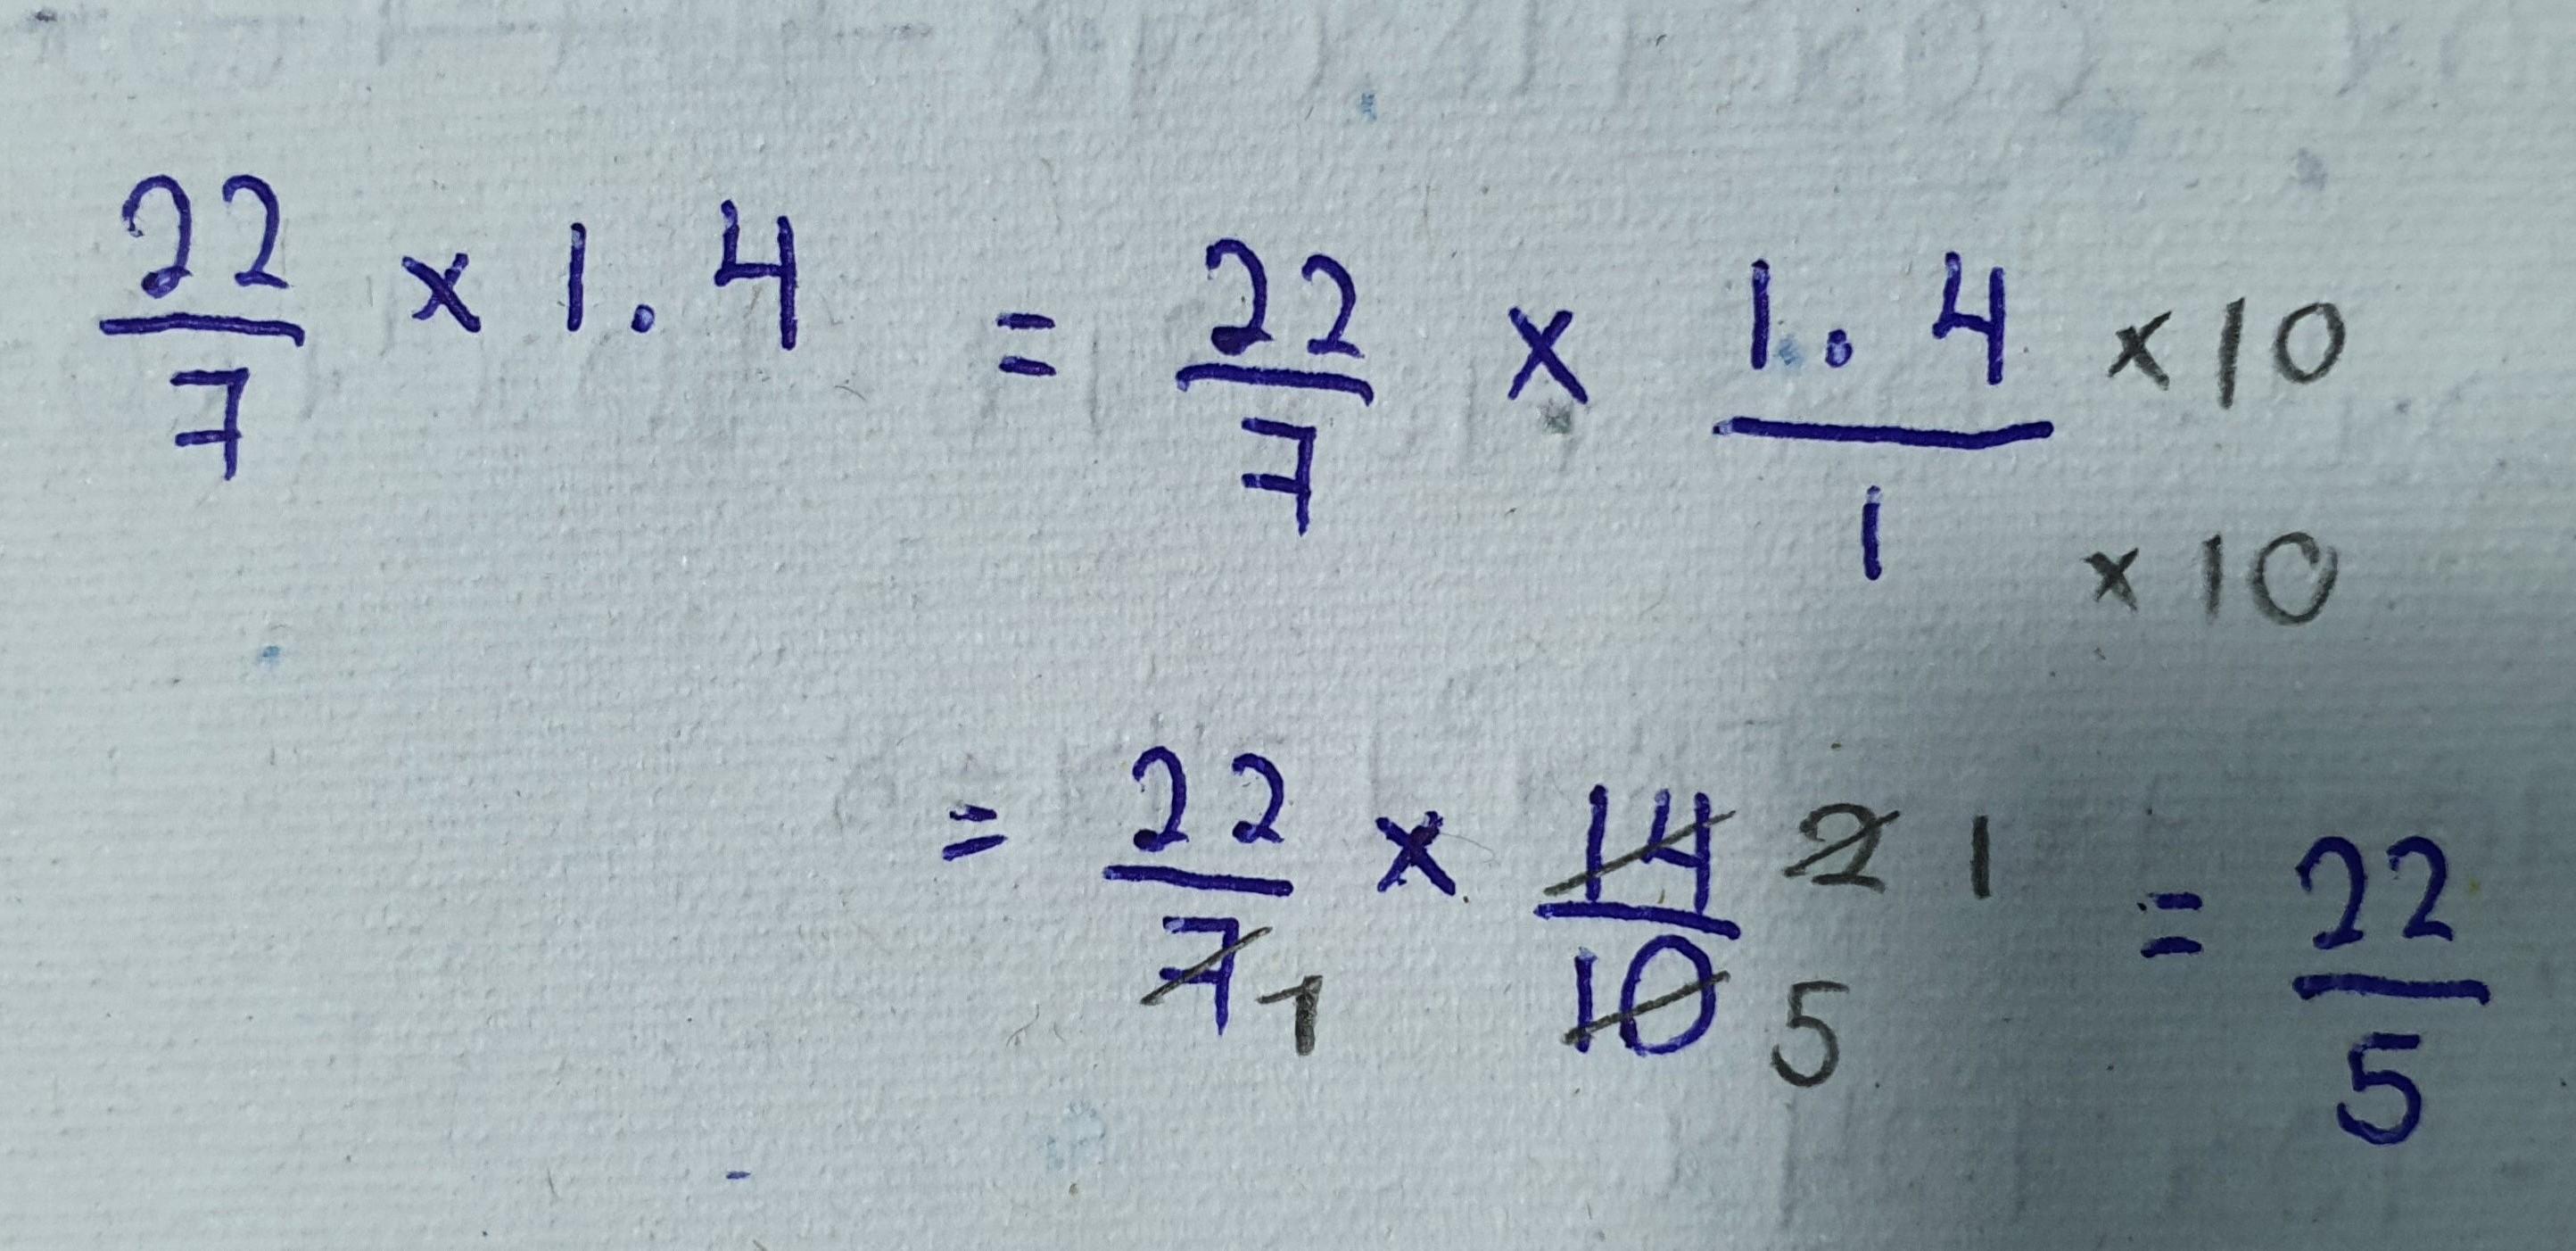 22/7 × 1.4 = 22/7 × 1.4/1 ×10 ×10
= 22/7 1 × 14/10 2 1 5 = 22/5